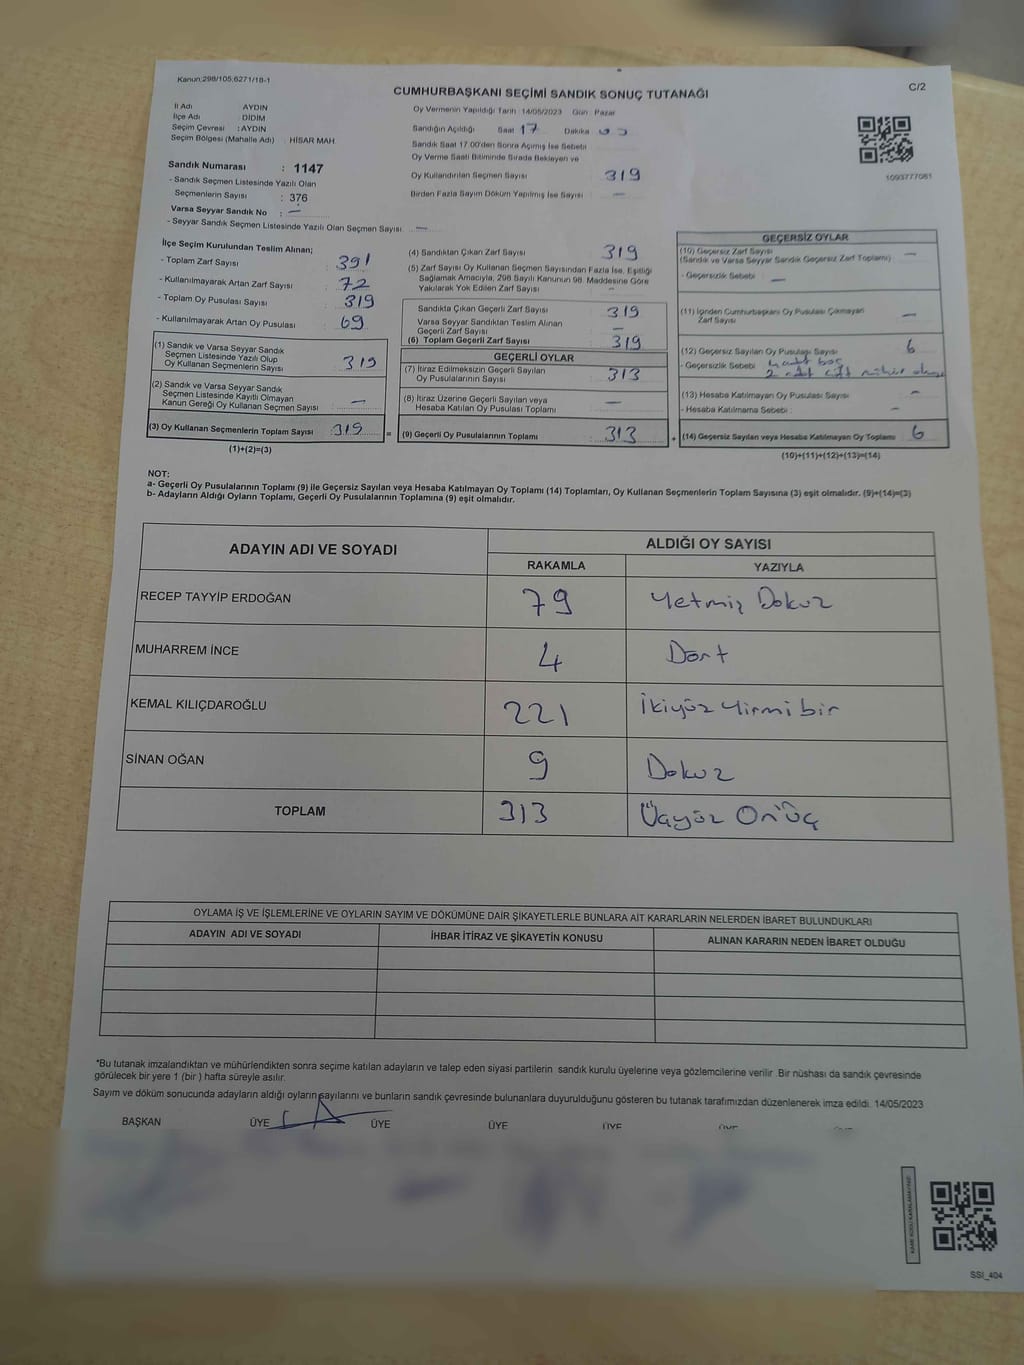 Kanun:298/105.6271/18-1
C/2
CUMHURBAŞKANI SEÇİMİ SANDIK SONUÇ TUTANAĞI
İl Adı : AYDIN
İlçe Adı : DİDİM
Seçim Çevresi : AYDIN
Seçim Bölgesi (Mahalle Adı) : HİSAR MAH.
Sandık Numarası : 1147
- Sandık Seçmen Listesinde Yazılı Olan
Seçmenlerin Sayısı : 376
Varsa Seyyar Sandık No : —
- Seyyar Sandık Seçmen Listesinde Yazılı Olan Seçmen Sayısı: —
Oy Vermenin Yapıldığı Tarih : 14/05/2023 Gün : Pazar
Sandığın Açıldığı Saat 17 Dakika
Sandık Saat 17.00'den Sonra Açımış İse Sebebi
Oy Verme Saati Bitiminde Sırada Bekleyen ve
Oy Kullandırılan Seçmen Sayısı 319
Birden Fazla Sayım Döküm Yapılmış İse Sayısı —
1093777061
İlçe Seçim Kurulundan Teslim Alınan;
- Toplam Zarf Sayısı : 391
- Kullanılmayarak Artan Zarf Sayısı : 72
- Toplam Oy Pusulası Sayısı : 319
- Kullanılmayarak Artan Oy Pusulası : 69
(1) Sandık ve Varsa Seyyar Sandık
Seçmen Listesinde Yazılı Olup
Oy Kullanan Seçmenlerin Sayısı : 319
(2) Sandık ve Varsa Seyyar Sandık
Seçmen Listesinde Kayıtlı Olmayan
Kanun Gereği Oy Kullanan Seçmen Sayısı : —
(3) Oy Kullanan Seçmenlerin Toplam Sayısı : 319
(1)+(2)=(3)
(4) Sandıktan Çıkan Zarf Sayısı 319
(5) Zarf Sayısı Oy Kullanan Seçmen Sayısından Fazla İse, Eşitliği
Sağlamak Amacıyla, 298 Sayılı Kanunun 98. Maddesine Göre
Yakılarak Yok Edilen Zarf Sayısı : —
Sandıkta Çıkan Geçerli Zarf Sayısı : 319
Varsa Seyyar Sandıktan Teslim Alınan
Geçerli Zarf Sayısı : —
(6) Toplam Geçerli Zarf Sayısı : 319
GEÇERLİ OYLAR
(7) İtiraz Edilmeksizin Geçerli Sayılan
Oy Pusulalarının Sayısı : 313
(8) İtiraz Üzerine Geçerli Sayılan veya
Hesaba Katılan Oy Pusulası Toplamı : —
= (9) Geçerli Oy Pusulalarının Toplamı : 313
GEÇERSİZ OYLAR
(10) Geçersiz Zarf Sayısı —
(Sandık ve Varsa Seyyar Sandık Geçersiz Zarf Toplamı)
- Geçersizlik Sebebi : —
(11) İçinden Cumhurbaşkanı Oy Pusulası Çıkmayan
Zarf Sayısı —
(12) Geçersiz Sayılan Oy Pusulası Sayısı 6
- Geçersizlik Sebebi : 4 adet boş
2 adet çift mühür
(13) Hesaba Katılmayan Oy Pusulası Sayısı —
- Hesaba Katılmama Sebebi : —
+ (14) Geçersiz Sayılan veya Hesaba Katılmayan Oy Toplamı 6
(10)+(11)+(12)+(13)=(14)
NOT:
a- Geçerli Oy Pusulalarının Toplamı (9) ile Geçersiz Sayılan veya Hesaba Katılmayan Oy Toplamı (14) Toplamları, Oy Kullanan Seçmenlerin Toplam Sayısına (3) eşit olmalıdır. (9)+(14)=(3)
b- Adayların Aldığı Oyların Toplamı, Geçerli Oy Pusulalarının Toplamına (9) eşit olmalıdır.
ADAYIN ADI VE SOYADI
ALDIĞI OY SAYISI
RAKAMLA YAZIYLA
RECEP TAYYİP ERDOĞAN 79 Yetmiş Dokuz
MUHARREM İNCE 4 Dört
KEMAL KILIÇDAROĞLU 221 İkiyüz Yirmi bir
SİNAN OĞAN 9 Dokuz
TOPLAM 313 Üçyüz Onüç
OYLAMA İŞ VE İŞLEMLERİNE VE OYLARIN SAYIM VE DÖKÜMÜNE DAİR ŞİKAYETLERLE BUNLARA AİT KARARLARIN NELERDEN İBARET BULUNDUKLARI
ADAYIN ADI VE SOYADI İHBAR İTİRAZ VE ŞİKAYETİN KONUSU ALINAN KARARIN NEDEN İBARET OLDUĞU
*Bu tutanak imzalandıktan ve mühürlendikten sonra seçime katılan adayların ve talep eden siyasi partilerin sandık kurulu üyelerine veya gözlemcilerine verilir. Bir nüshası da sandık çevresinde
görülecek bir yere 1 (bir ) hafta süreyle asılır.
Sayım ve döküm sonucunda adayların aldığı oyların sayılarını ve bunların sandık çevresinde bulunanlara duyurulduğunu gösteren bu tutanak tarafımızdan düzenlenerek imza edildi. 14/05/2023
BAŞKAN ÜYE ÜYE ÜYE ÜYE ÜYE
SSI_404